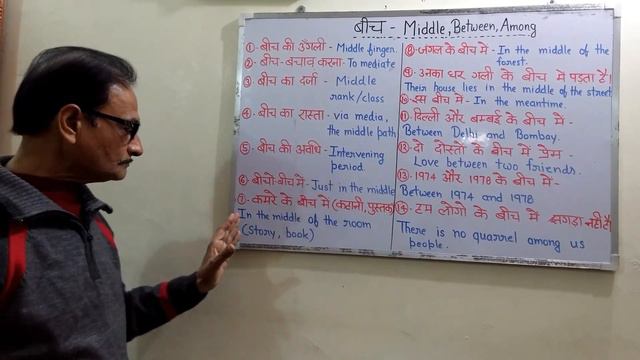 बीच - Middle, Between, Among
① बीच की उँगली - Middle finger.
② बीच-बचाव करना - To mediate
③ बीच का दर्जा - Middle
rank/class
④ बीच का रास्ता - via media,
the middle path
⑤ बीच की अवधि - Intervening
period.
⑥ बीचो-बीच में - Just in the middle
⑦ कमरे के बीच में (कहानी, पुस्तक)
In the middle of the room
(story, book)
⑧ जंगल के बीच में - In the middle of the
forest.
⑨ उनका घर गली के बीच में पड़ता है।
Their house lies in the middle of the street
⑩ इस बीच में - In the meantime.
⑪ दिल्ली और बम्बई के बीच में -
Between Delhi and Bombay.
⑫ दो दोस्तों के बीच में प्रेम -
Love between two friends.
⑬ 1974 और 1978 के बीच में -
Between 1974 and 1978
⑭ हम लोगो के बीच में झगड़ा नहीं है
There is no quarrel among us
people.